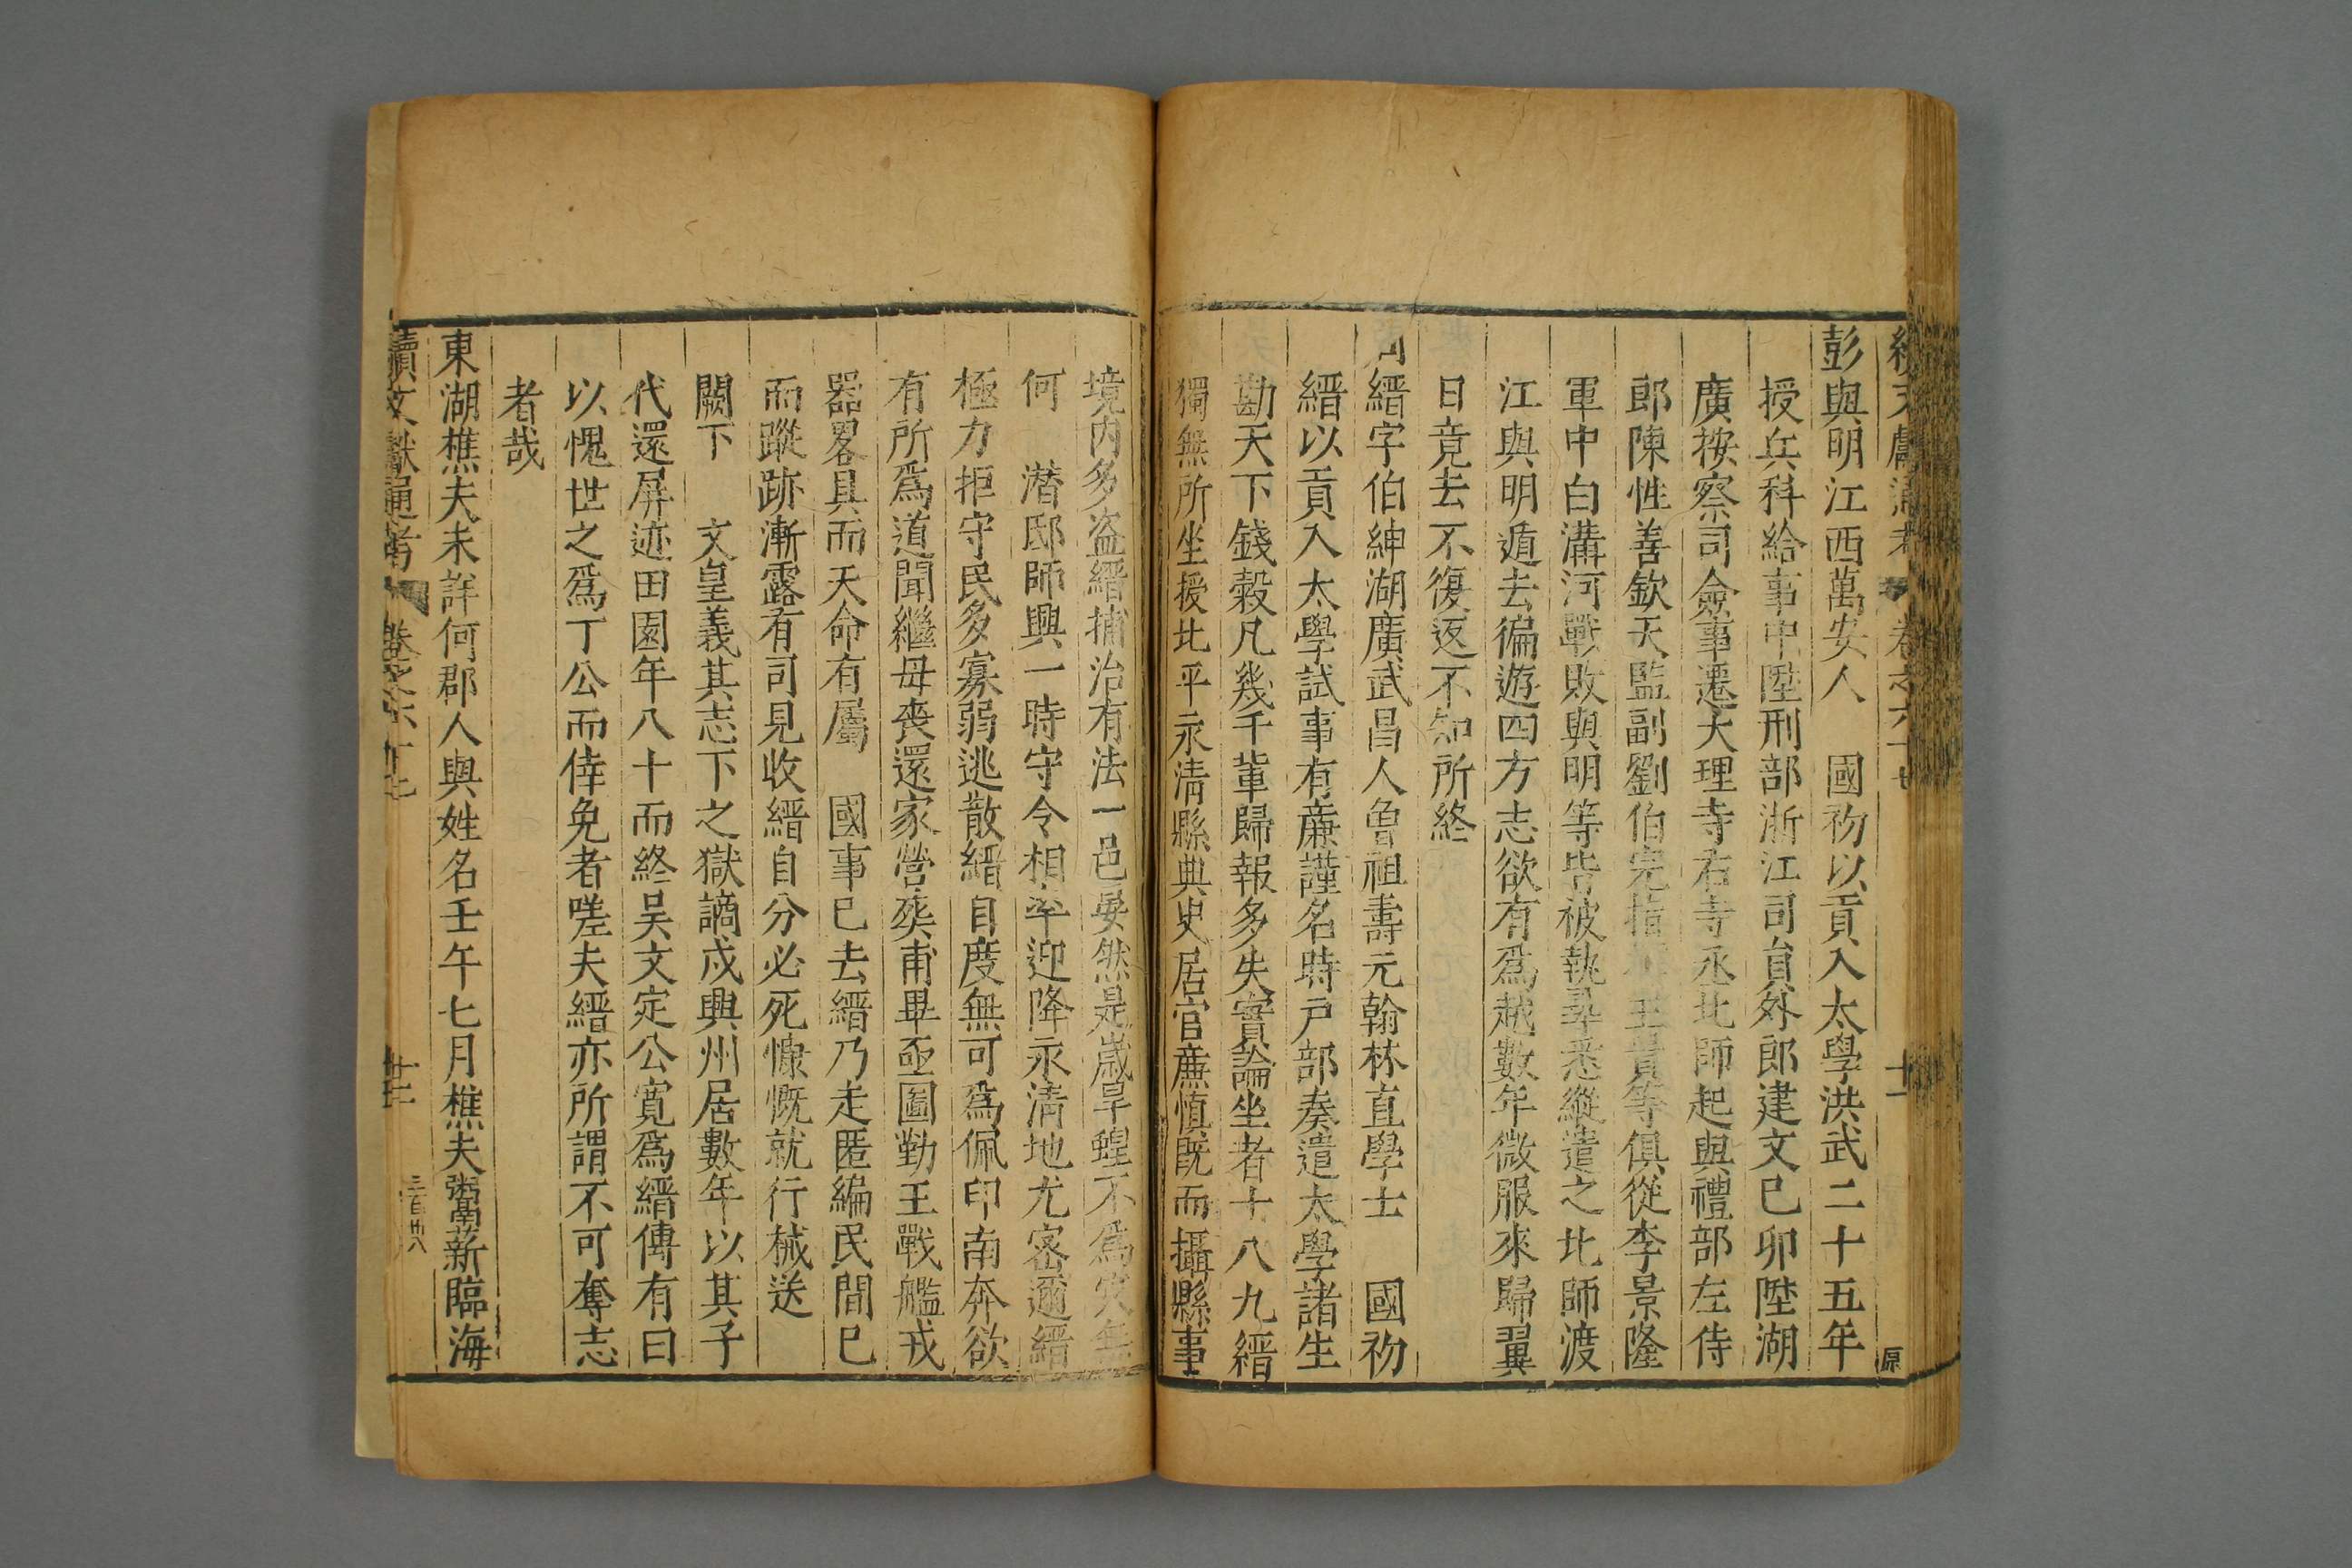 續文獻通考 卷之六十七 十一 原
彭與明江西萬安人 國初以貢入太學洪武二十五年
授兵科給事中陞刑部浙江司員外郎建文己卯陞湖
廣按察司僉事遷大理寺右寺丞北師起與禮部左侍
郎陳性善欽天監副劉伯完指 王貴等俱從李景隆
軍中白溝河戰敗與明等皆被執尋悉縱遣之北師渡
江與明遁去徧遊四方志欲有爲越數年微服來歸翼
日竟去不復返不知所終
縉字伯紳湖廣武昌人魯祖壽元翰林直學士 國初
縉以貢入太學試事有廉謹名時戶部奏遣太學諸生
勘天下錢穀凡幾千輩歸報多失實論坐者十八九縉
獨無所坐授北平永清縣典史居官廉慎既而攝縣事
境內多盜縉捕治有法一邑晏然是歲旱蝗不爲灾無
何 潛邸師興一時守令相率迎降永清地尤密邇縉
極力拒守民多寡弱逃散縉自度無可爲佩印南奔欲
有所爲道聞繼母喪還家營𦵏甫畢亟圖勤王戰艦戎
器畧具而天命有屬 國事已去縉乃走匿編民間已
而蹤跡漸露有司見收縉自分必死慷慨就行械送
闕下 文皇義其志下之獄謫戍興州居數年以其子
代還屏迹田園年八十而終吳文定公寬爲縉傳有曰
以愧世之爲丁公而倖免者嗟夫縉亦所謂不可奪志
者哉
東湖樵夫未詳何郡人與姓名壬午七月樵夫鬻薪臨海
續文獻通考 卷之六十七 十二 三百卅八